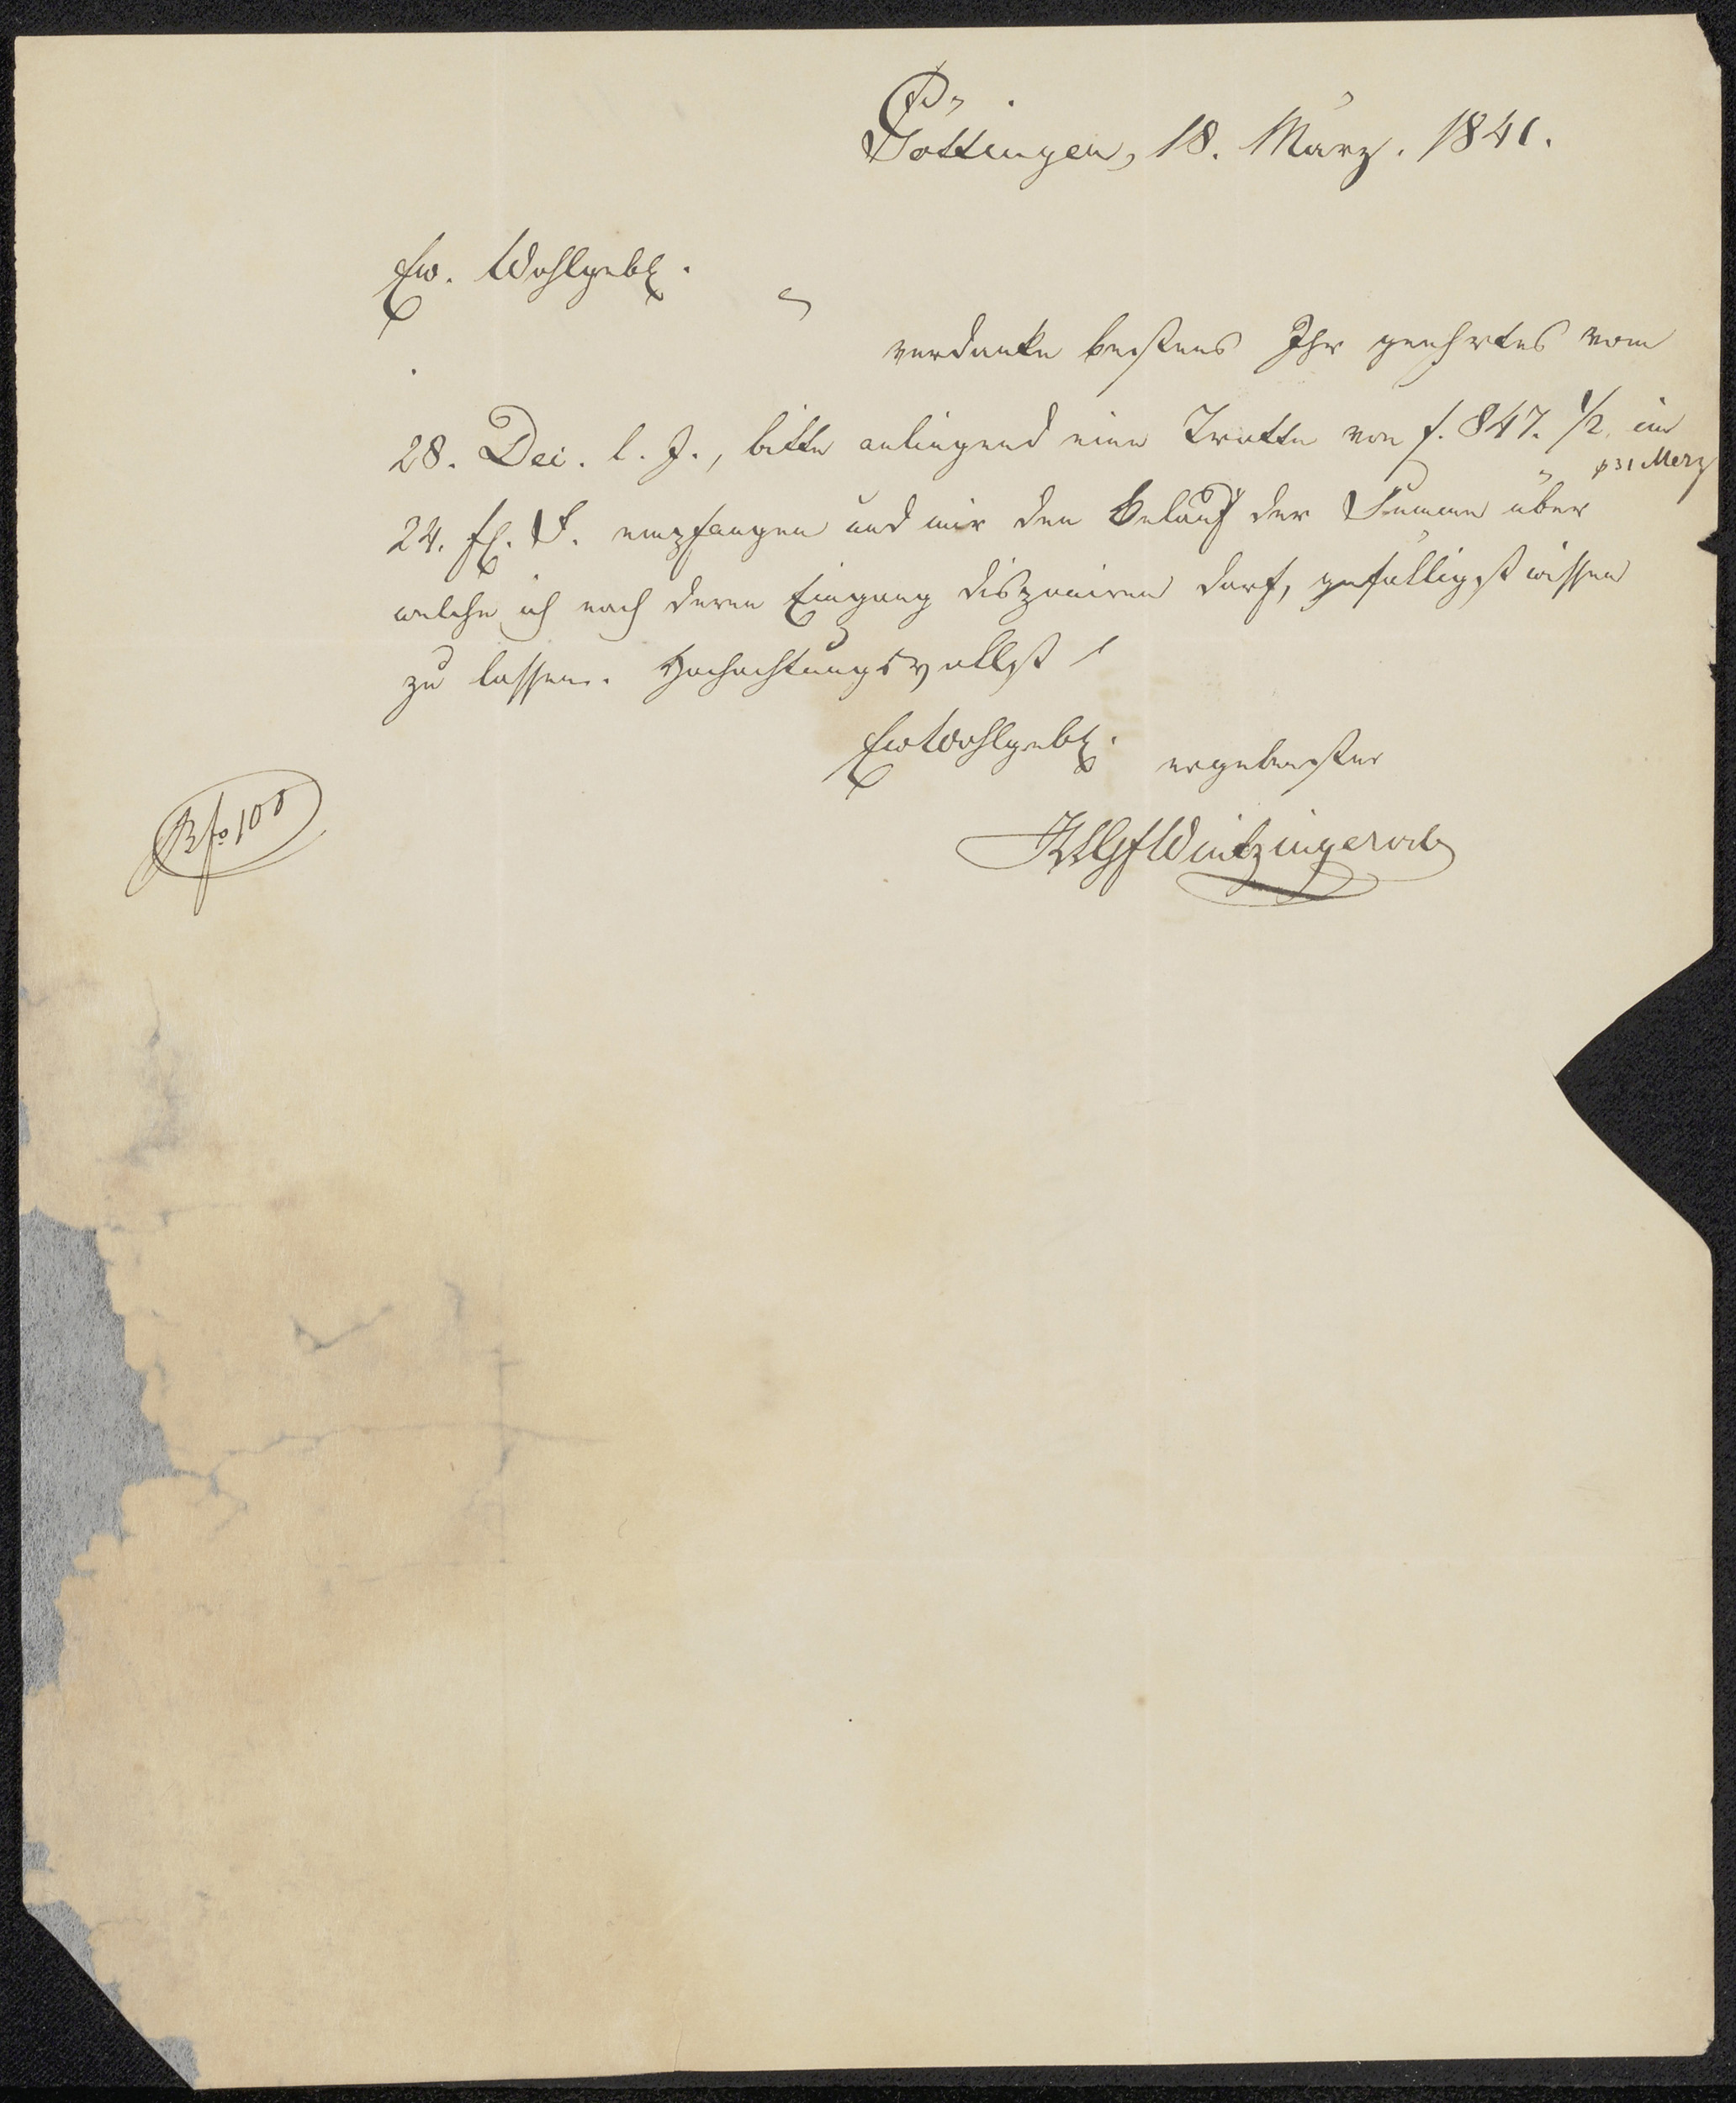 Göttingen, 18. März. 1841.
Ew. Wohlgeb.
verdanke bestens Ihr geehrtes vom
28. Dec. l. J., bitte anliegend eine Tratte von f. 847. 1/2 im
31 Merz
24. fl. F. empfangen und mir den Belauf der Summe über
welche ich nach deren Eingang disponiren darf, gefälligst wissen
zu lassen. Hochachtungsvollst
Ew Wohlgeb. ergebenster
Wintzingerode
100